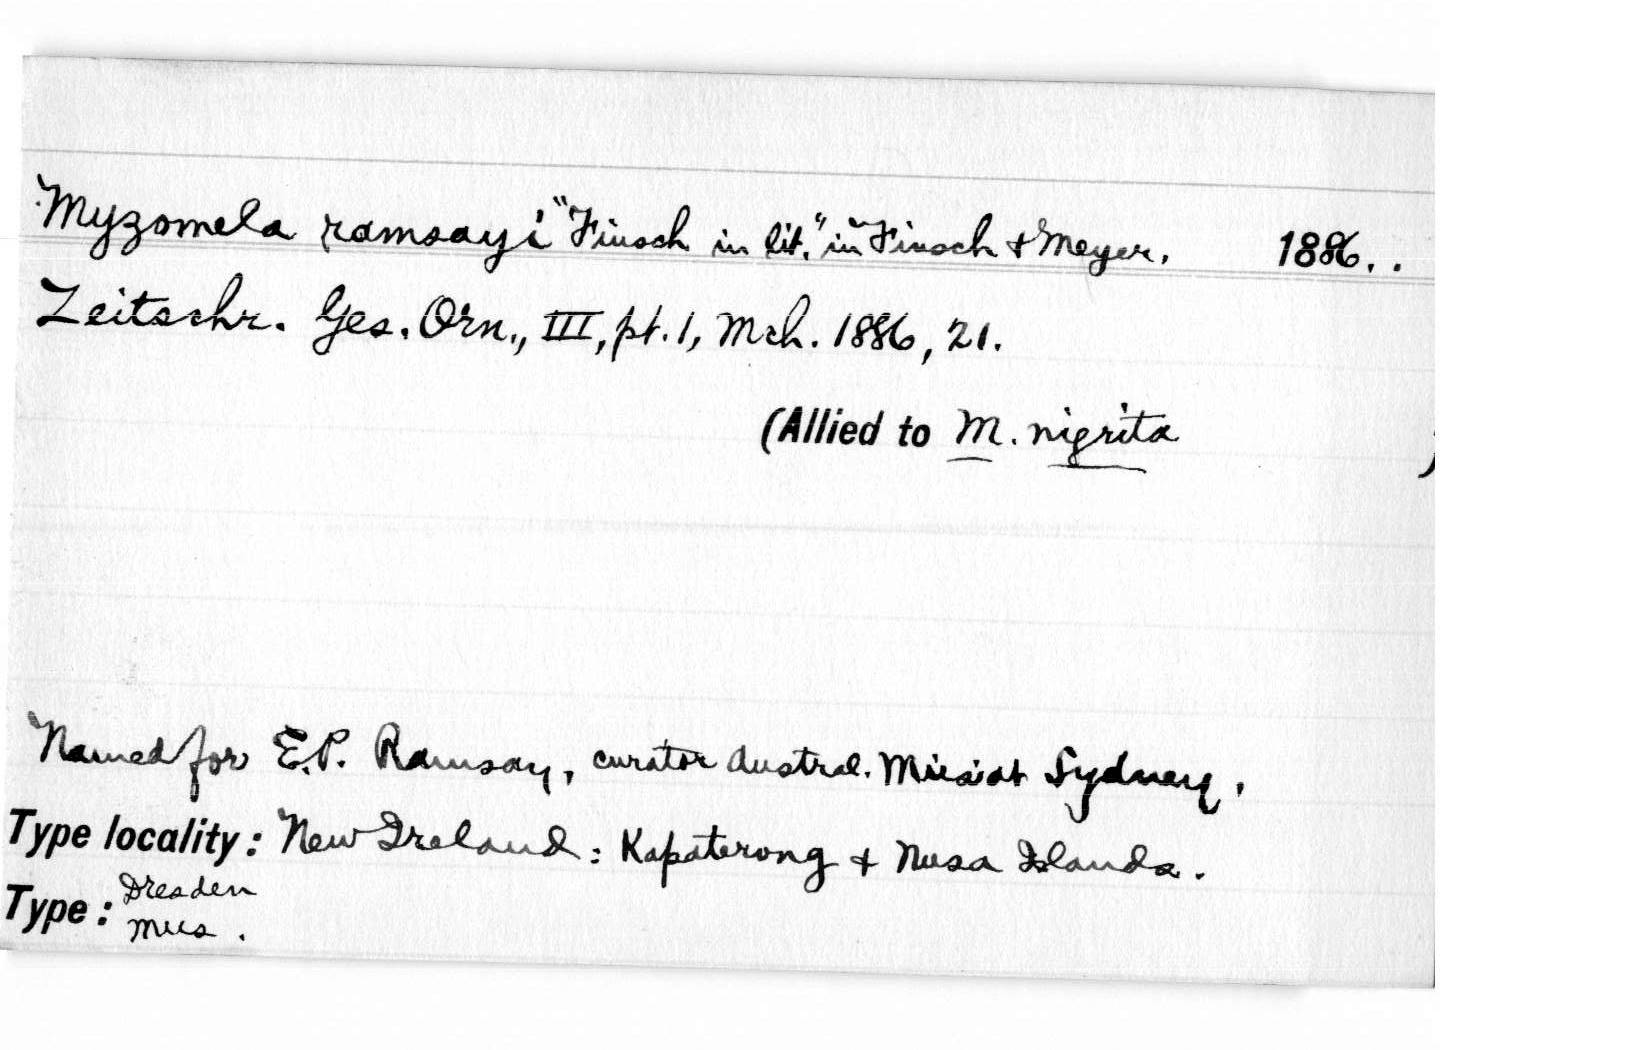 Myzomela ramsayi "Finsch in lit." in Finsch & Meyer. 1886. .
Zeitschr. Ges. Orn., III, pt. 1, Mch. 1886, 21.
(Allied to M. nigrita )
Named for E.P. Ramsay, curator Austral. Mus. at Sydney.
Type locality: New Ireland: Kapaterong & Nusa Islands.
Type: Dresden
Mus.